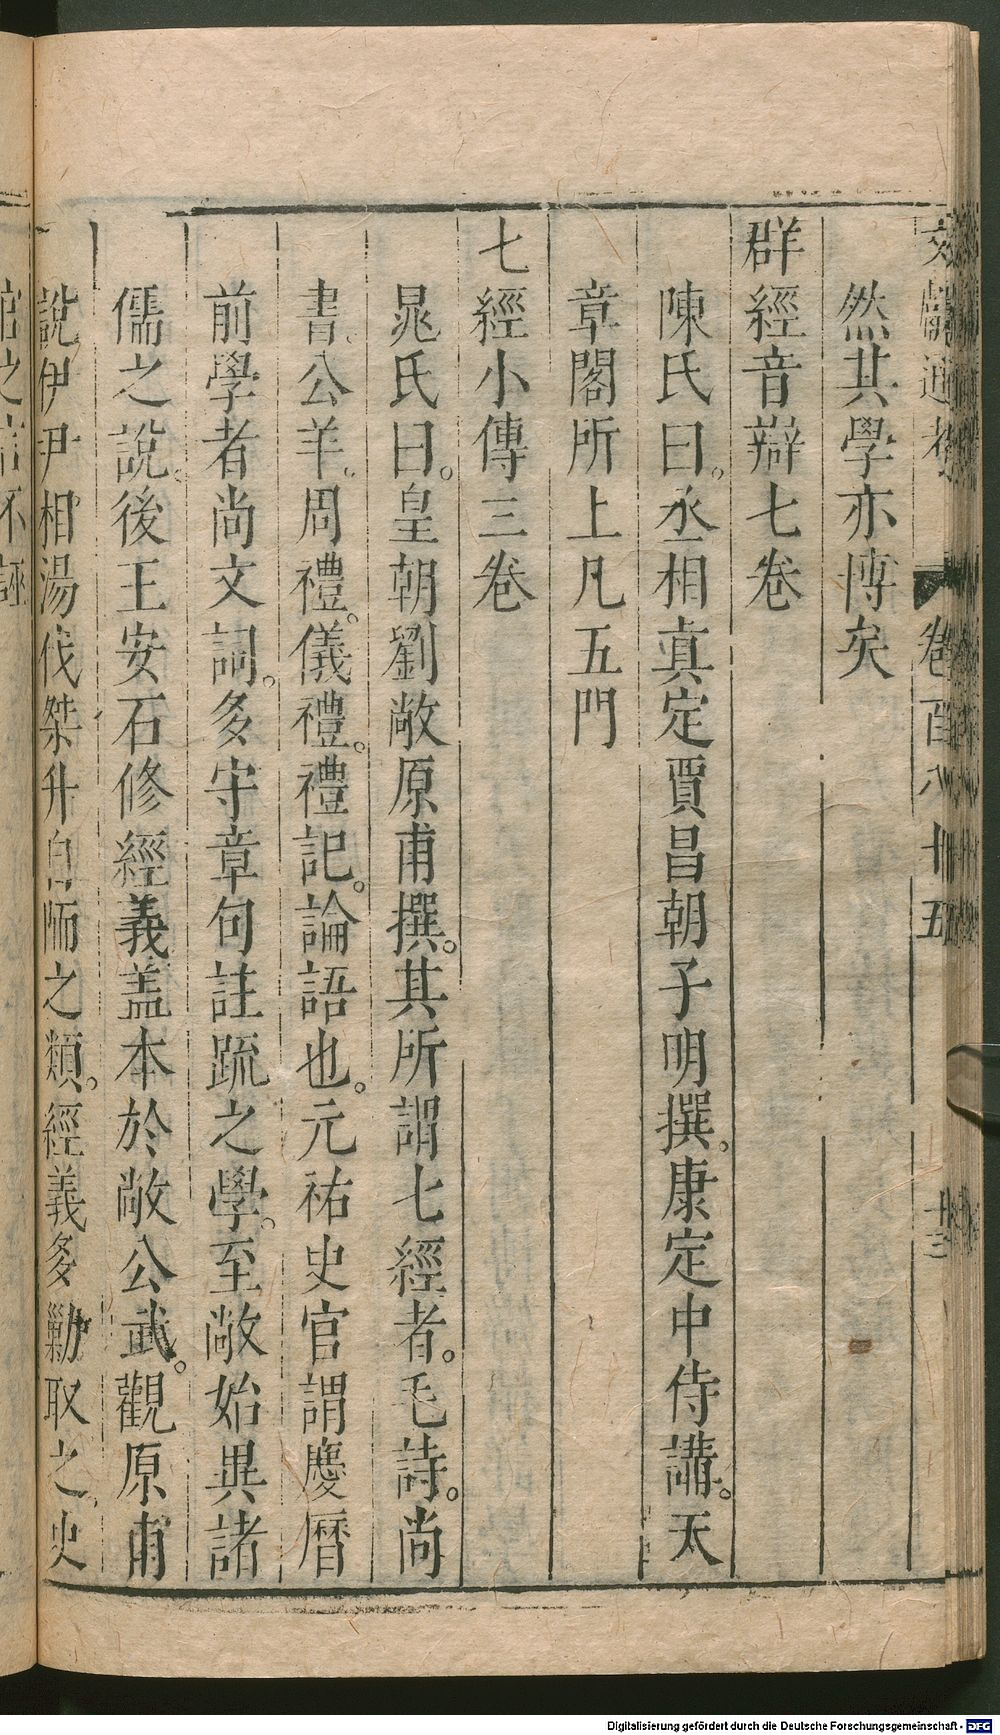 文獻通考 卷百八十五 十三
然其學亦博矣
群經音辯七卷
陳氏曰。丞相真定賈昌朝子明撰。康定中侍講。天
章閣所上凡五門
七經小傳三卷
晁氏曰。皇朝劉敞原甫撰。其所謂七經者。毛詩。尚
書。公羊。周禮。儀禮。禮記。論語也。元祐史官謂慶曆
前學者尚文詞。多守章句註疏之學。至敞始異諸
儒之說。後王安石修經義盖本於敞公武。觀原甫
說伊尹相湯伐桀升自陑之類。經義多勦取之。史
官之言不誣
Digitalisierung gefördert durch die Deutsche Forschungsgemeinschaft - DFG